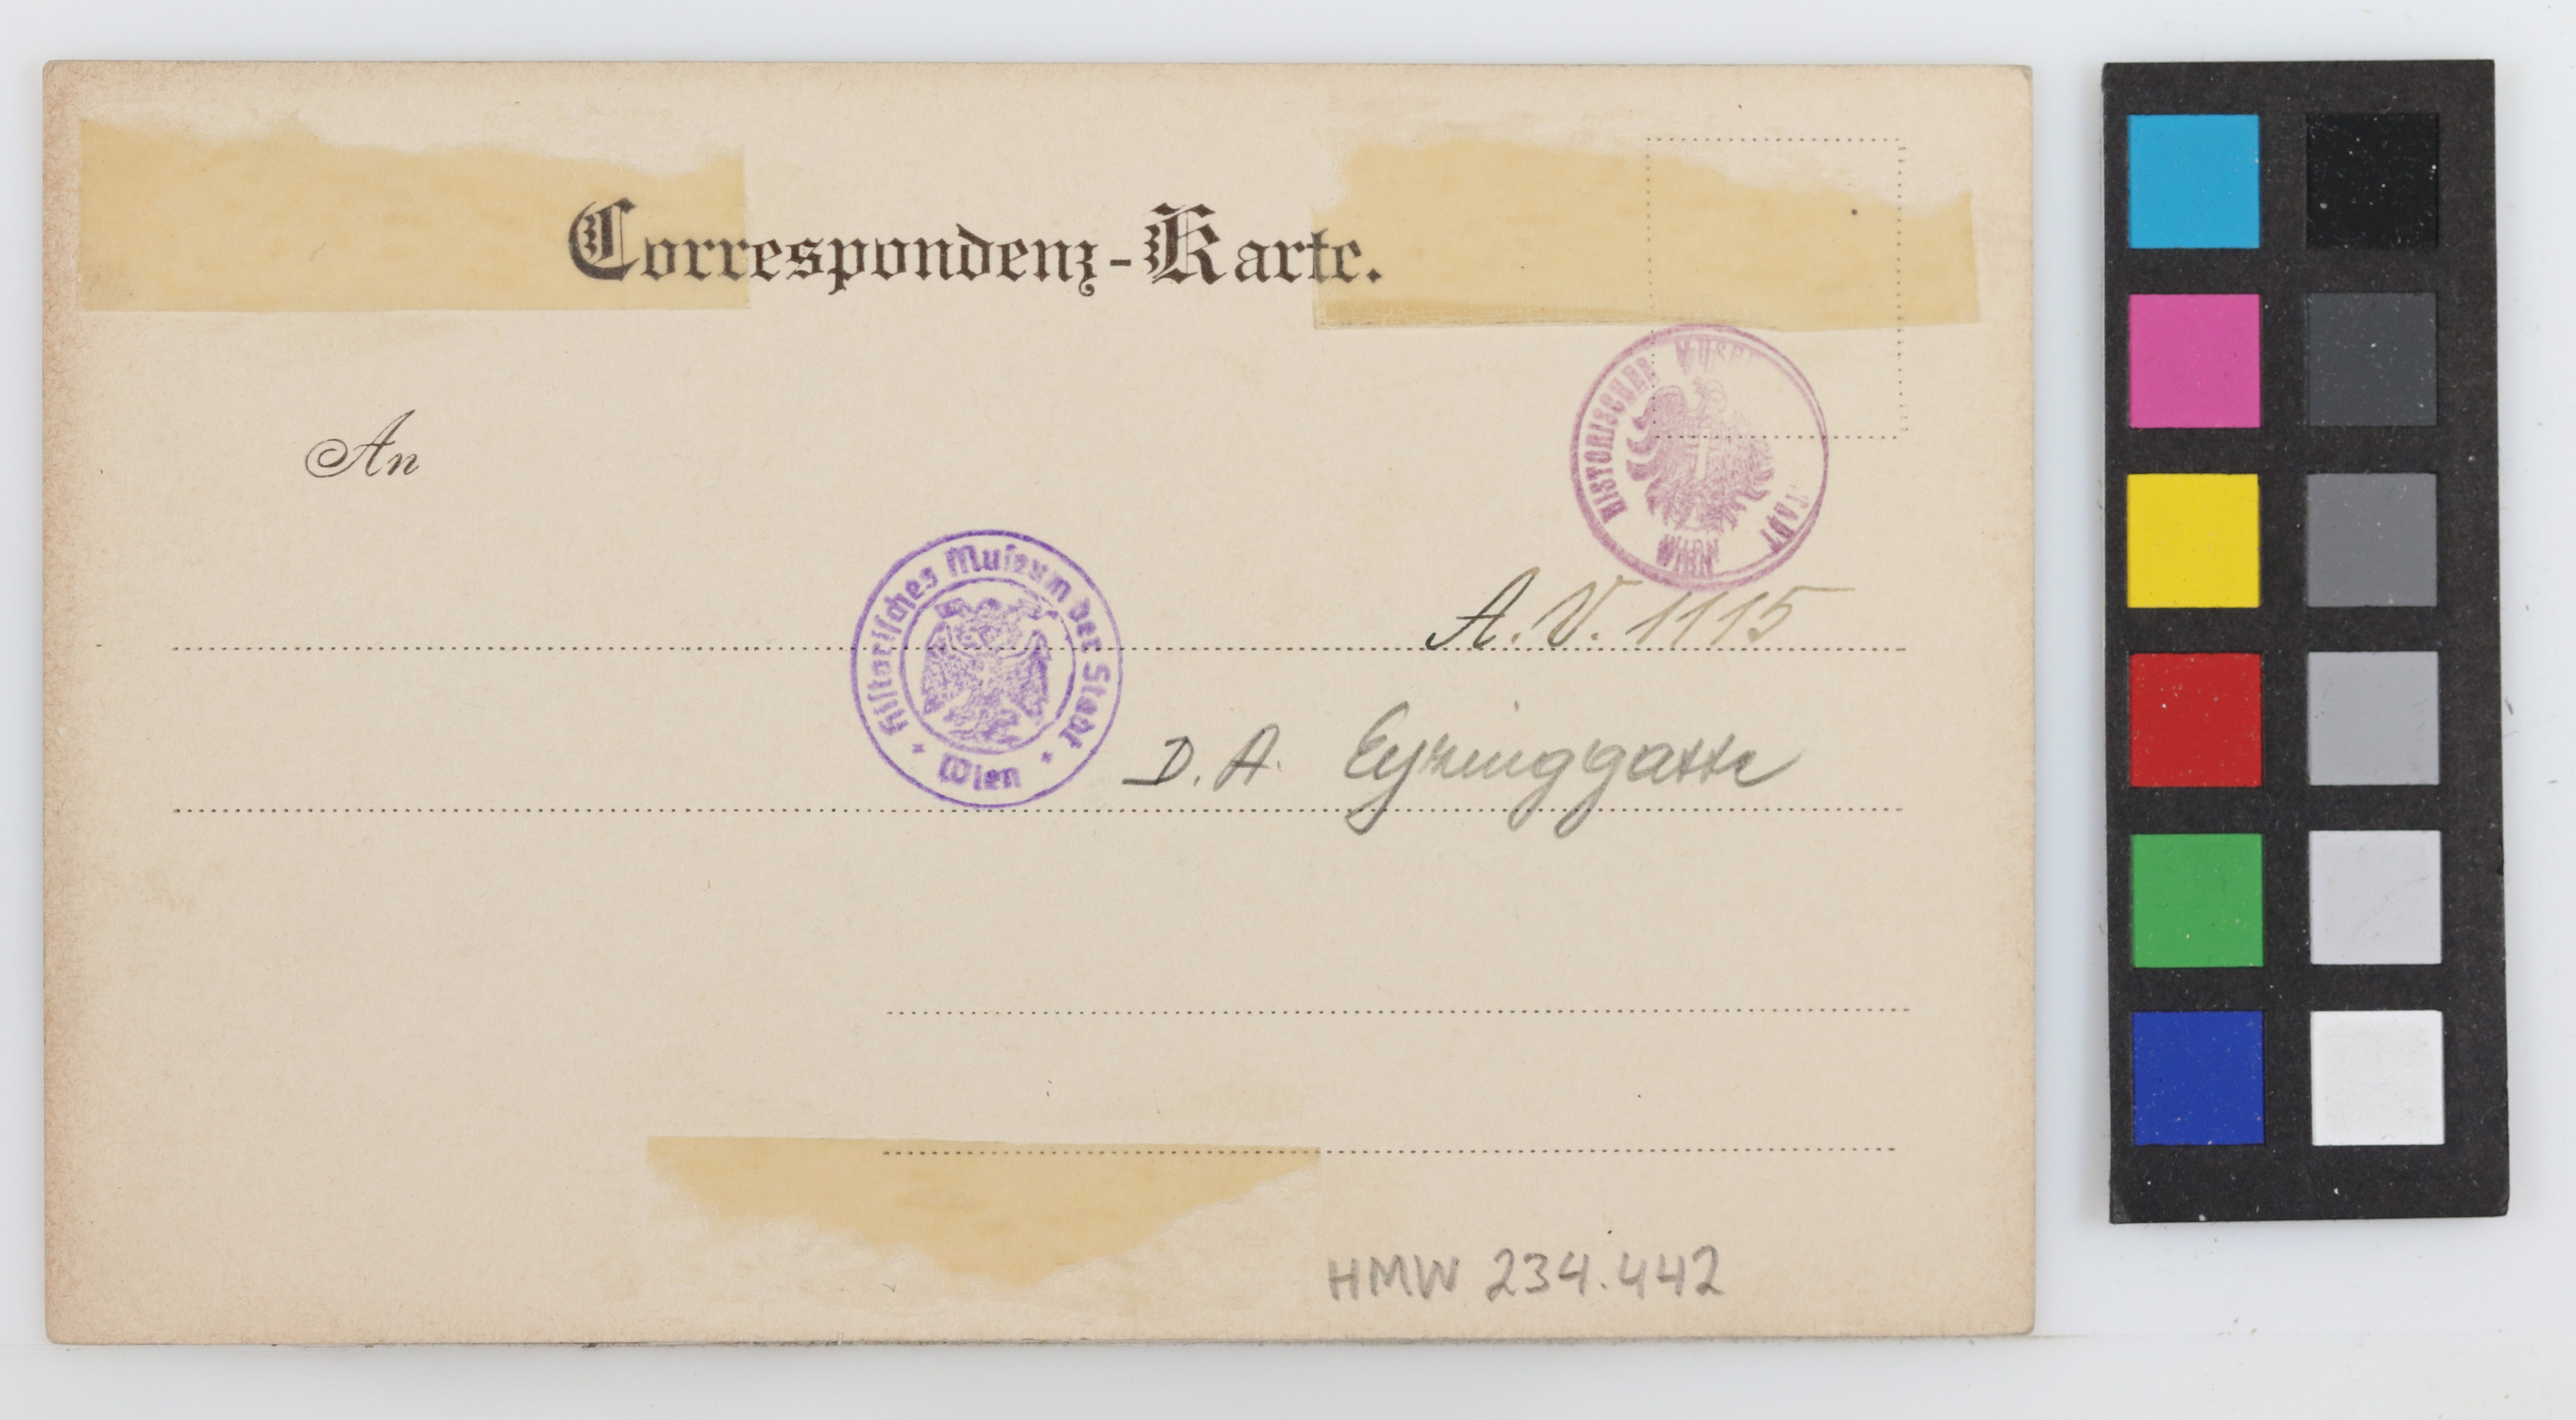 Correspondenz-Karte.
An
HISTORISCHES MUSEUM STADT WIEN
Historisches Museum der Stadt Wien
A.V. 1115
D. A. Eyringgasse
HMW 234.442